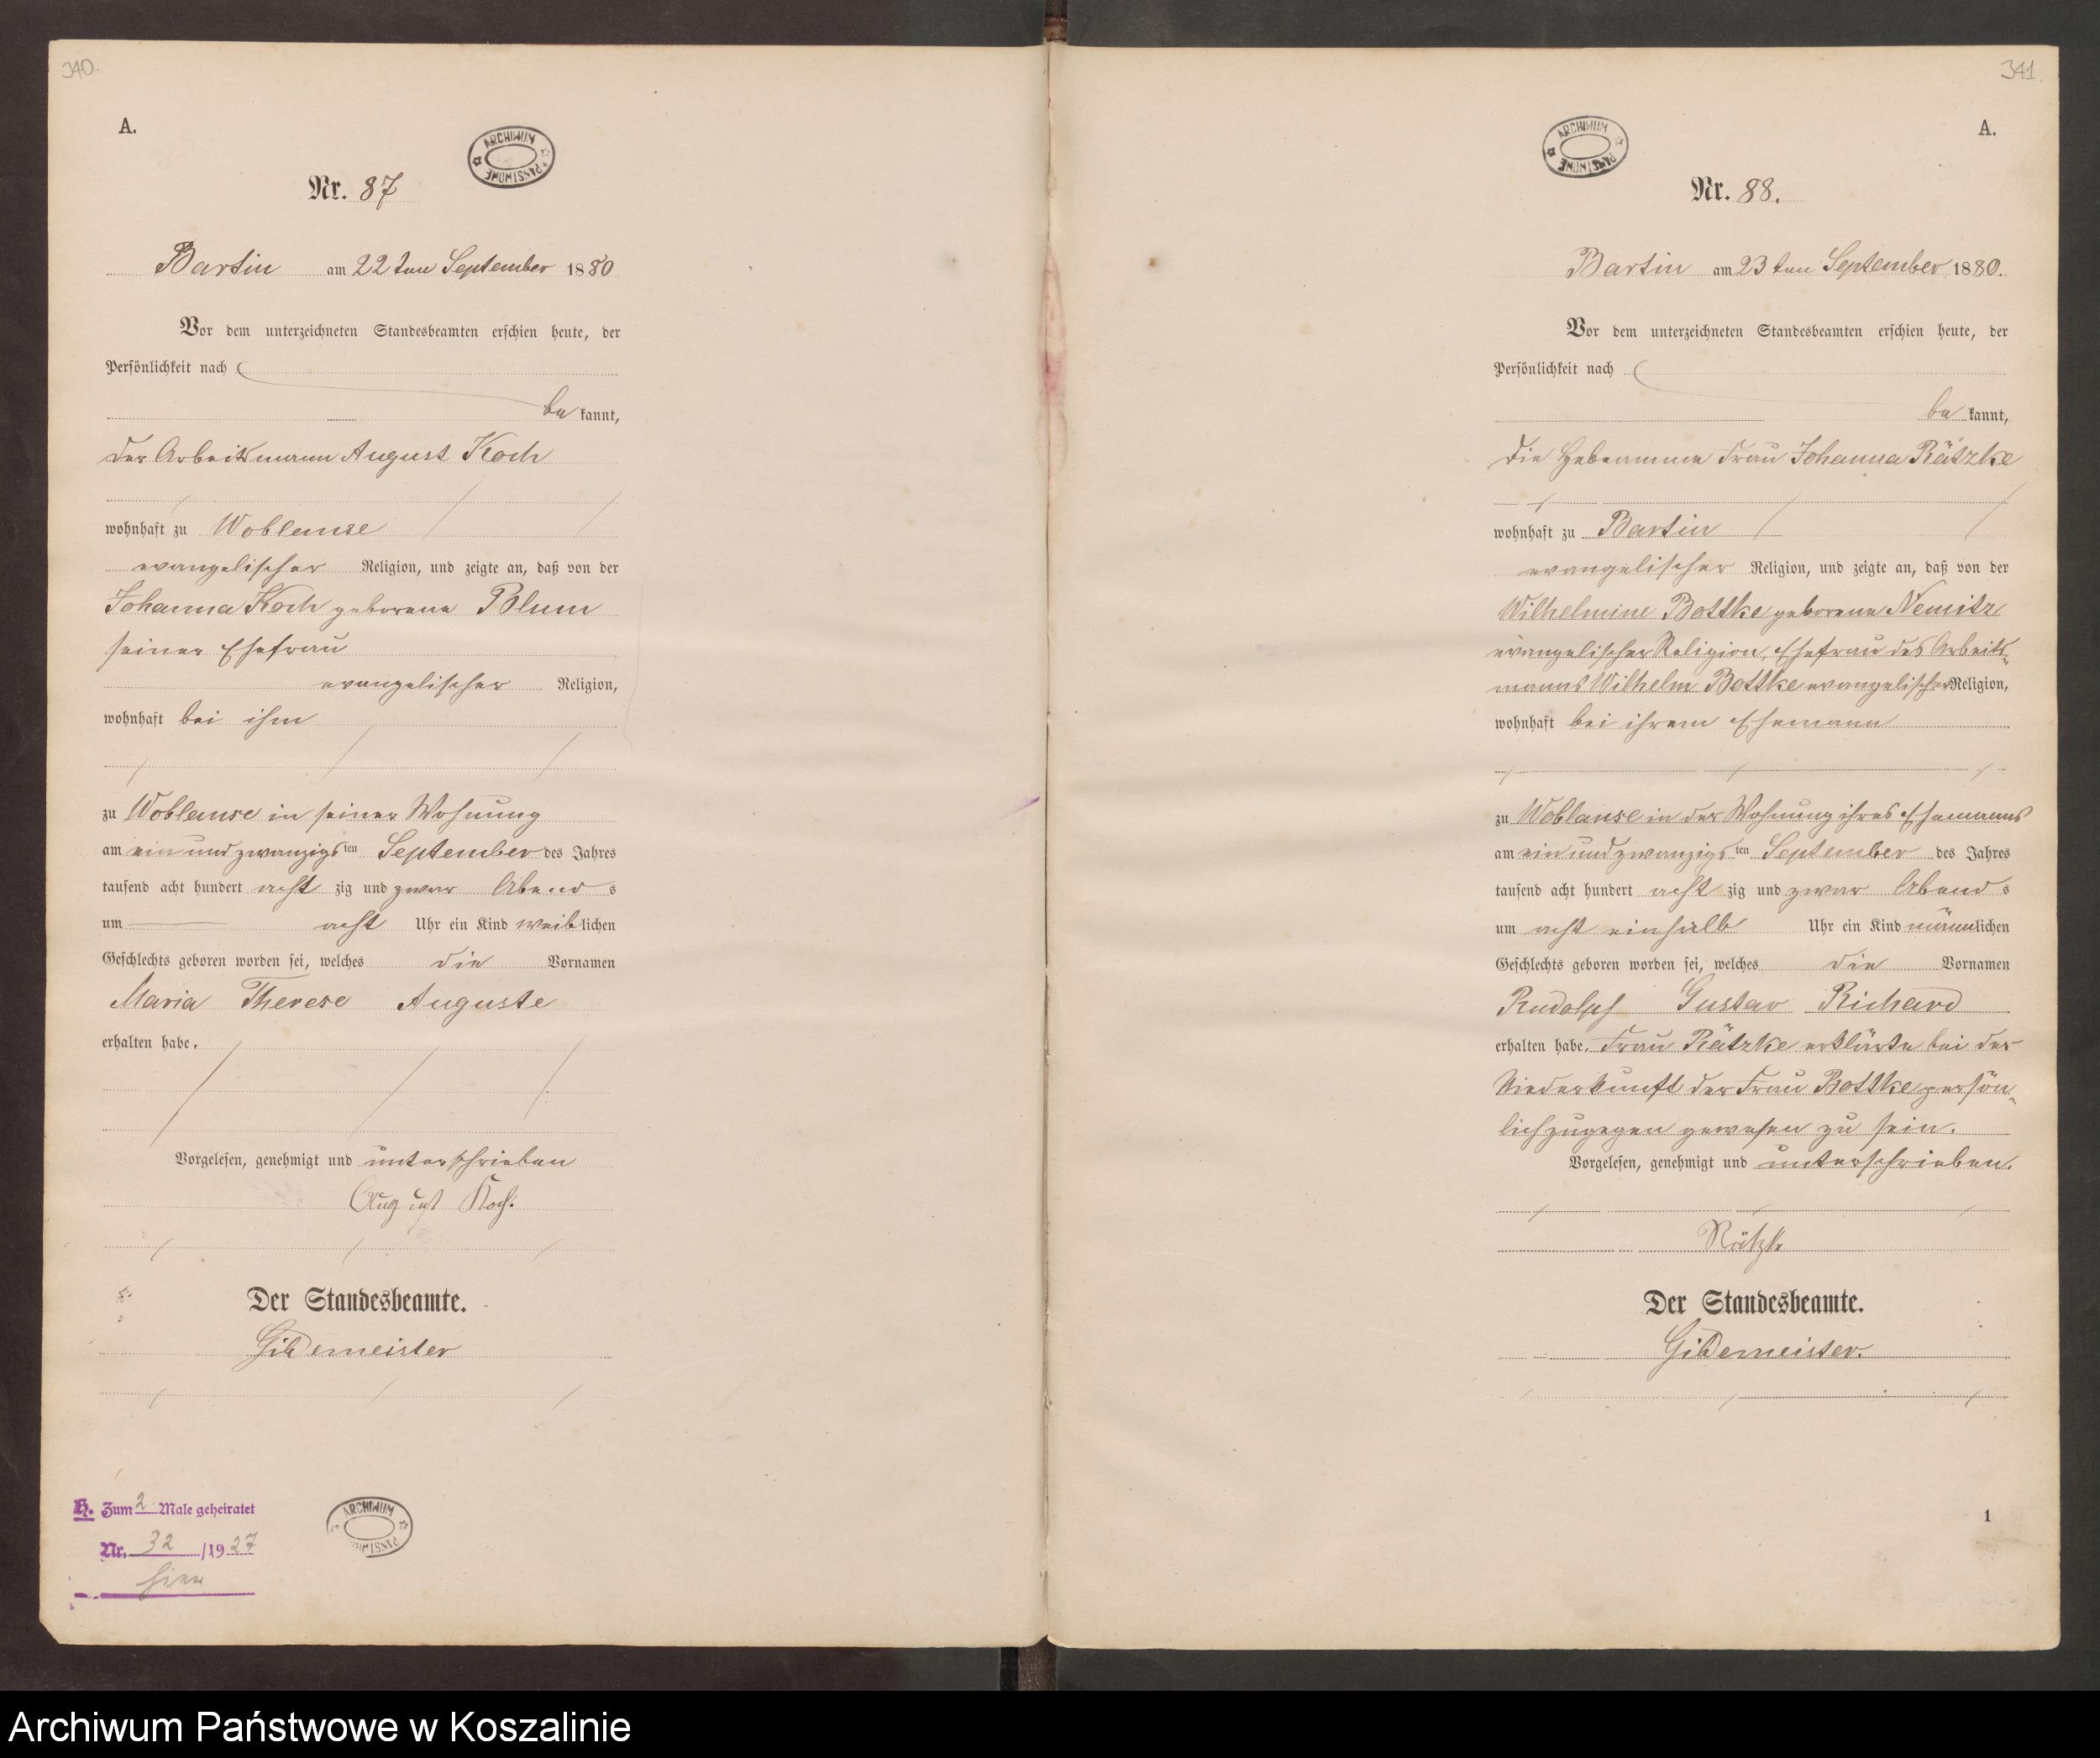 340.
A.
ARCHIWUM PAŃSTWOWE
Nr. 87
Bartin am 22ten September 1880
Vor dem unterzeichneten Standesbeamten erschien heute, der
Persönlichkeit nach
bekannt,
der Arbeitsmann August Koch
wohnhaft zu Woblanse
evangelischer Religion, und zeigte an, daß von der
Johanna Koch geborene Blum
seiner Ehefrau
evangelischer Religion,
wohnhaft bei ihm
zu Woblanse in seiner Wohnung
am ein und zwanzigsten September des Jahres
tausend acht hundert acht zig und zwar Abends
um acht Uhr ein Kind weiblichen
Geschlechts geboren worden sei, welches die Vornamen
Maria Therese Auguste
erhalten habe.
Vorgelesen, genehmigt und unterschrieben
August Koch.
Der Standesbeamte.
Gildemeister
H. Zum 2 Male geheiratet
Nr. 32 /1927
hier
ARCHIWUM PAŃSTWOWE
341.
A.
ARCHIWUM PAŃSTWOWE
Nr. 88.
Bartin am 23ten September 1880.
Vor dem unterzeichneten Standesbeamten erschien heute, der
Persönlichkeit nach
bekannt,
die Hebeamme Frau Johanna Rätzke
wohnhaft zu Bartin
evangelischer Religion, und zeigte an, daß von der
Wilhelmine Bottke geborene Nemitz
evangelischer Religion, Ehefrau des Arbeits-
manns Wilhelm Bottke evangelischer Religion,
wohnhaft bei ihrem Ehemann
zu Woblanse in der Wohnung ihres Ehemanns
am ein und zwanzigsten September des Jahres
tausend acht hundert acht zig und zwar Abends
um acht einhalb Uhr ein Kind männlichen
Geschlechts geboren worden sei, welches die Vornamen
Rudolph Gustav Richard
erhalten habe. Frau Rätzke erklärte bei der
Niederkunft der Frau Bottke persön-
lich zugegen gewesen zu sein.
Vorgelesen, genehmigt und unterschrieben.
Rätzke
Der Standesbeamte.
Gildemeister.
1
Archiwum Państwowe w Koszalinie